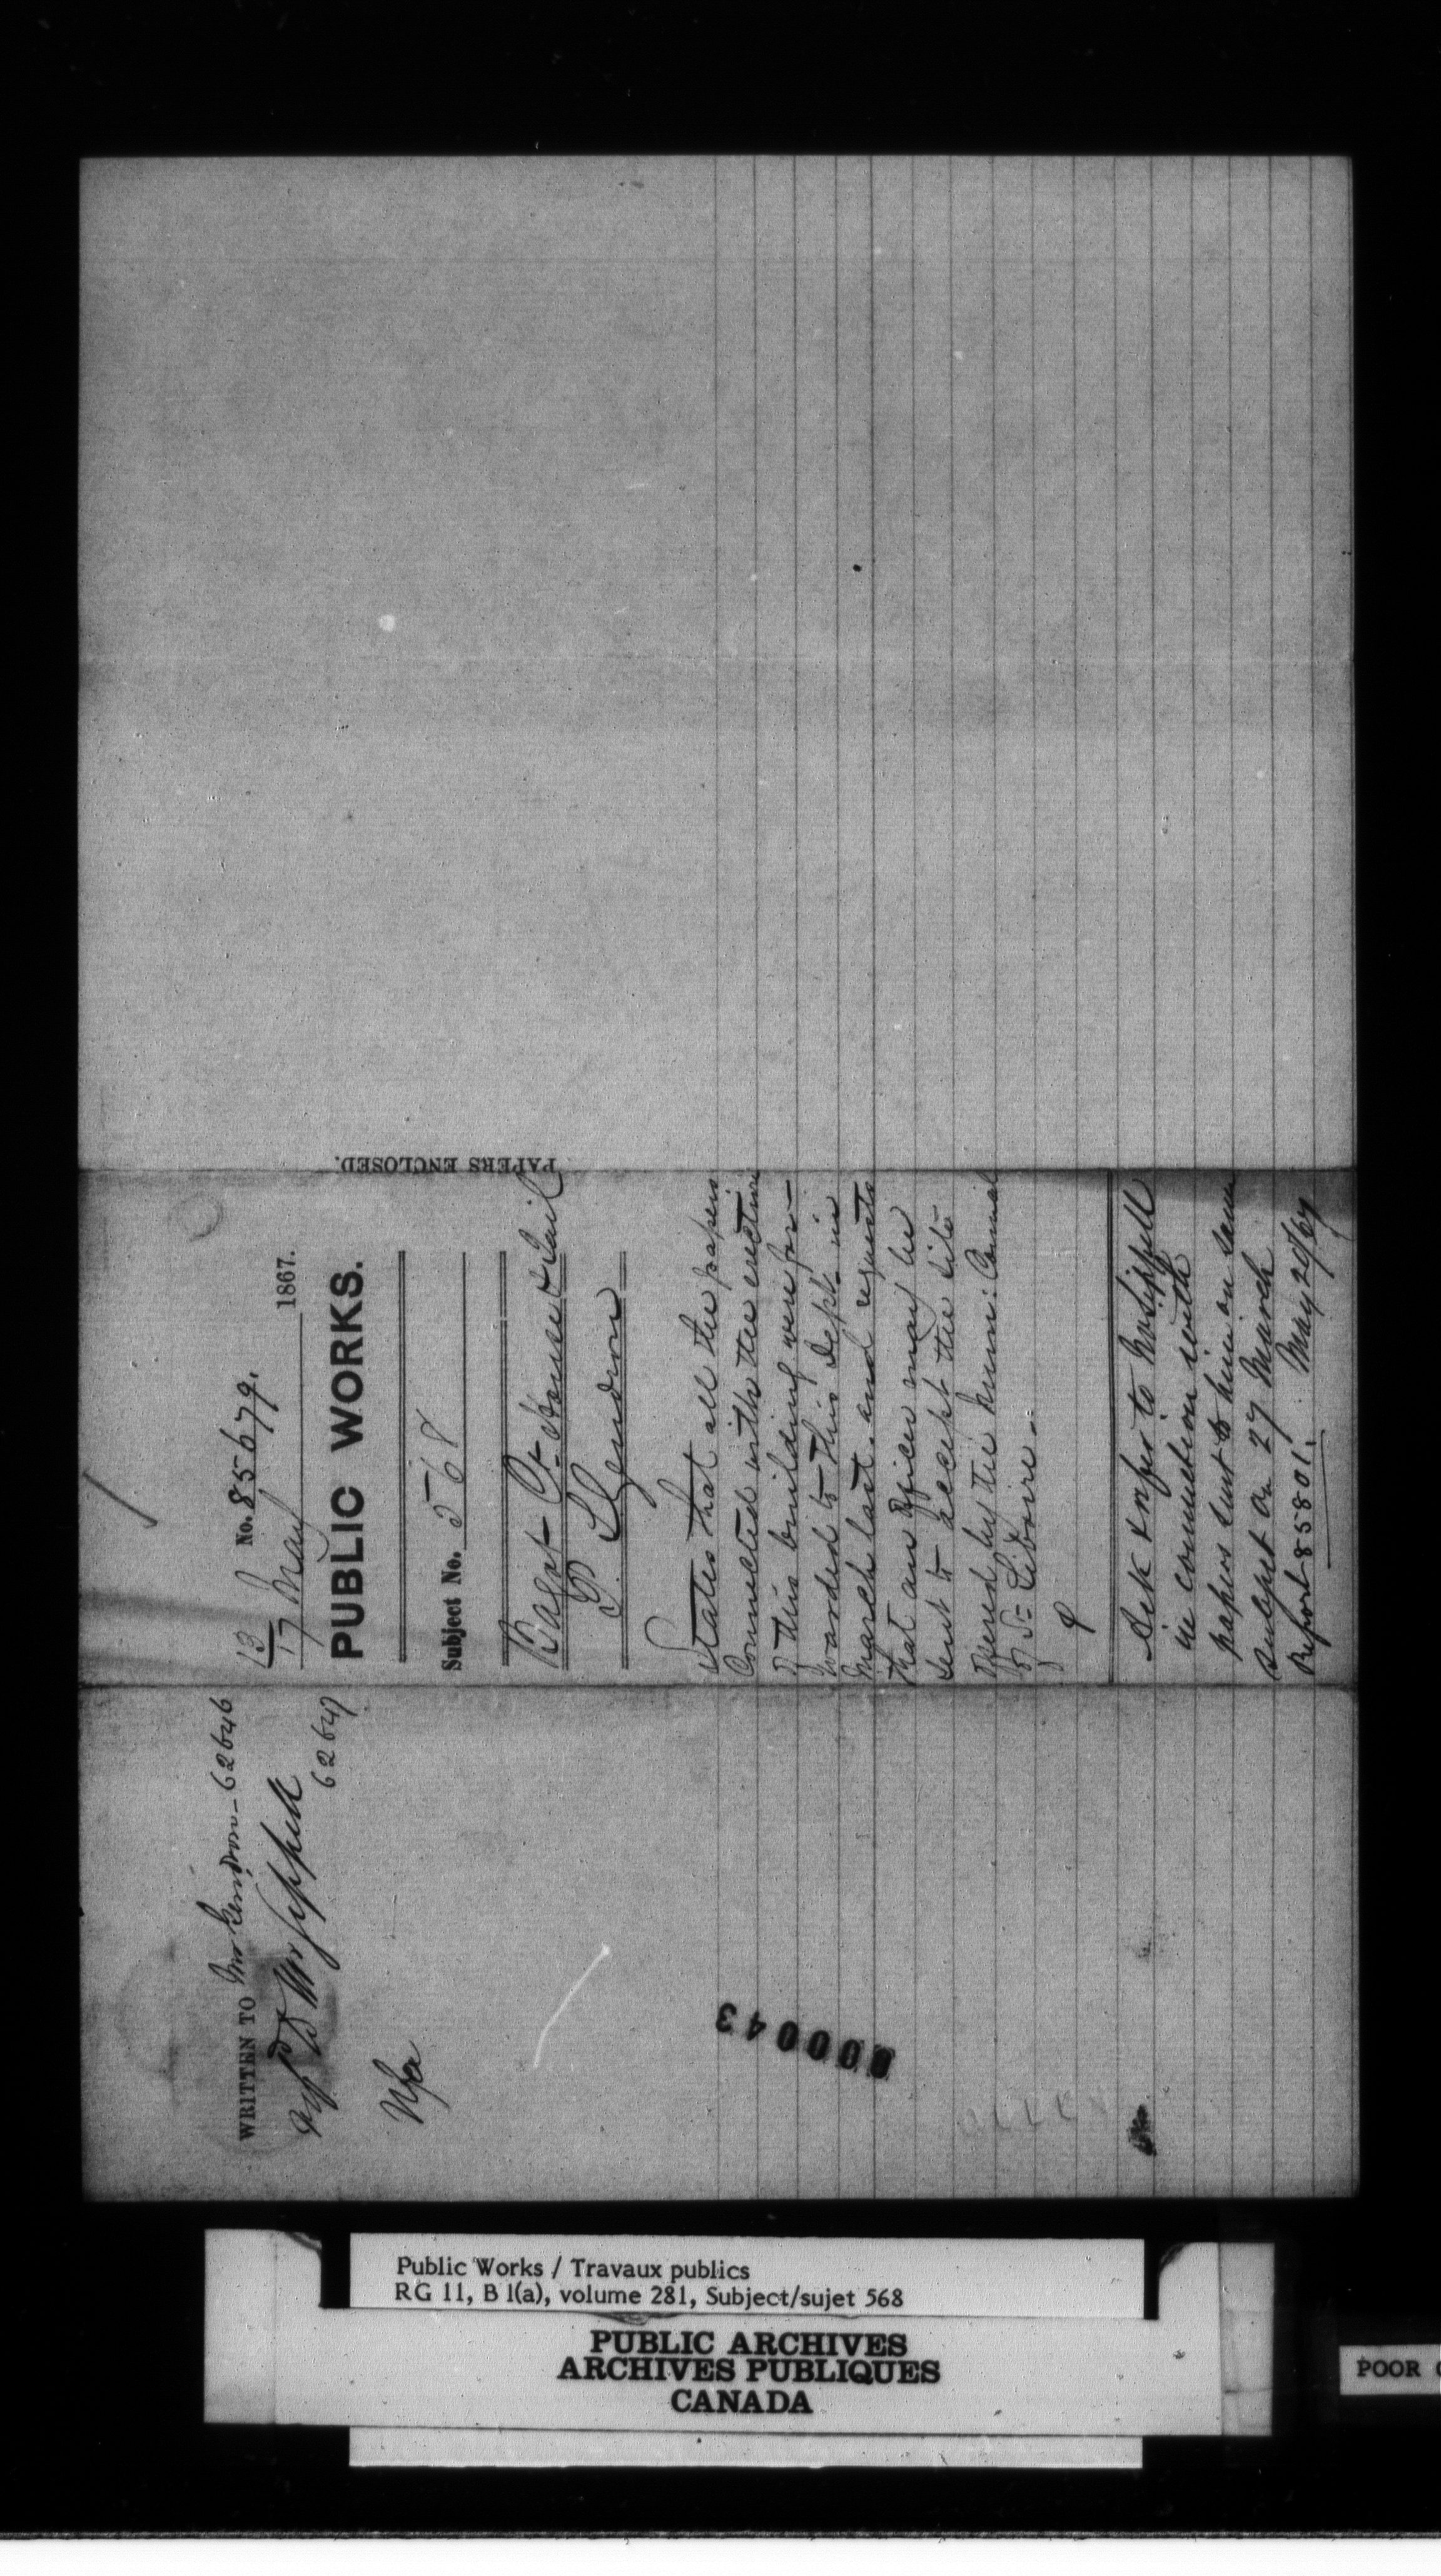 13
No. 85679.
17 May 1867.
PUBLIC WORKS.
Subject No. 568
Bagot Ct. House & Gail
P. Gendron
States that all the papers
Connected with the erection
of this building were for-
warded to this Dept. in
March last. and requests
that an officer may be
sent to accept the site
offered by the Muni: Council
of St. Liboire -
Ack & refer to Mr Sippell
in connection with
papers sent to him on same
subject on 27 March
Report 85801. May 20/67
PAPERS ENCLOSED.
WRITTEN TO Mr Gendron - 62646
Mr Sippell
62647
000043
Public Works / Travaux publics
RG 11, B 1(a), volume 281, Subject/sujet 568
PUBLIC ARCHIVES
ARCHIVES PUBLIQUES
CANADA
POOR